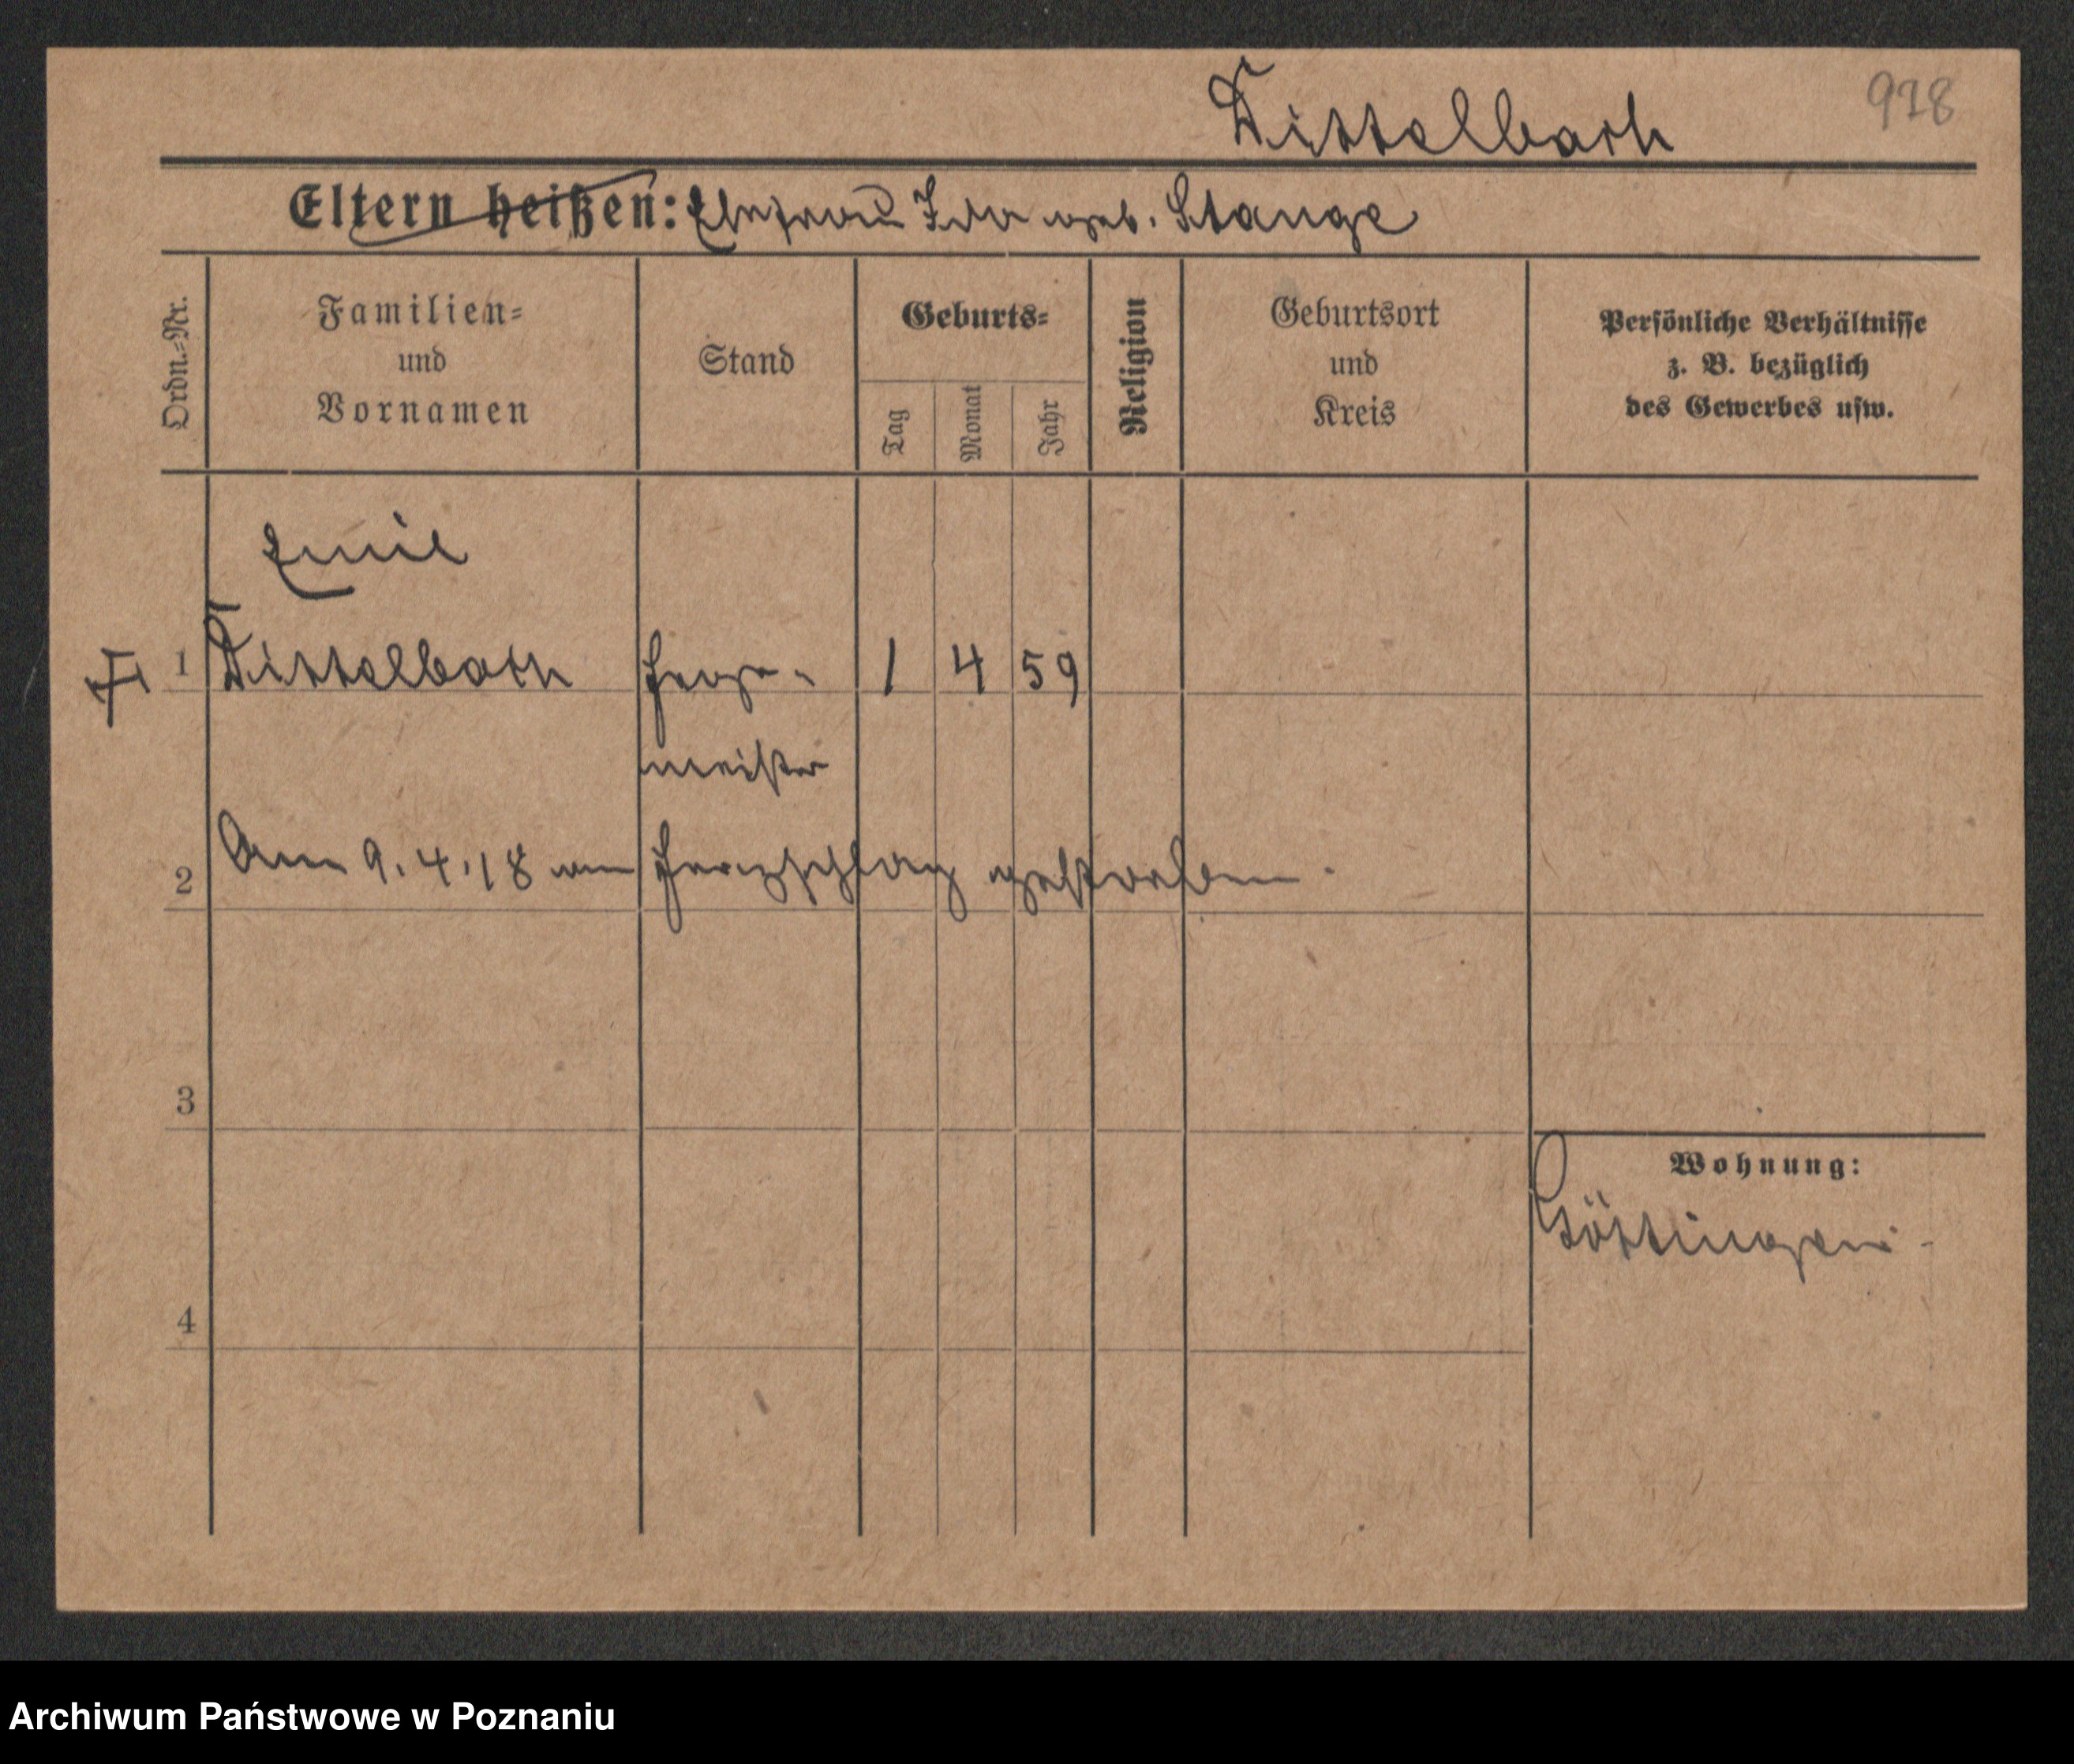 Dittelbach 918
Eltern heißen: Ehefrau Ida geb. Stange
Ordn.-Nr.
Familien-
und
Vornamen
Stand
Geburts-
Tag
Monat
Jahr
Religion
Geburtsort
und
Kreis
Persönliche Verhältnisse
z. B. bezüglich
des Gewerbes usw.
Emil
1 Dittelbach 1 4 59
meister
2 Am 9.4.18 am Herzschlag gestorben.
3
Wohnung:
Göttingen
4
Archiwum Państwowe w Poznaniu